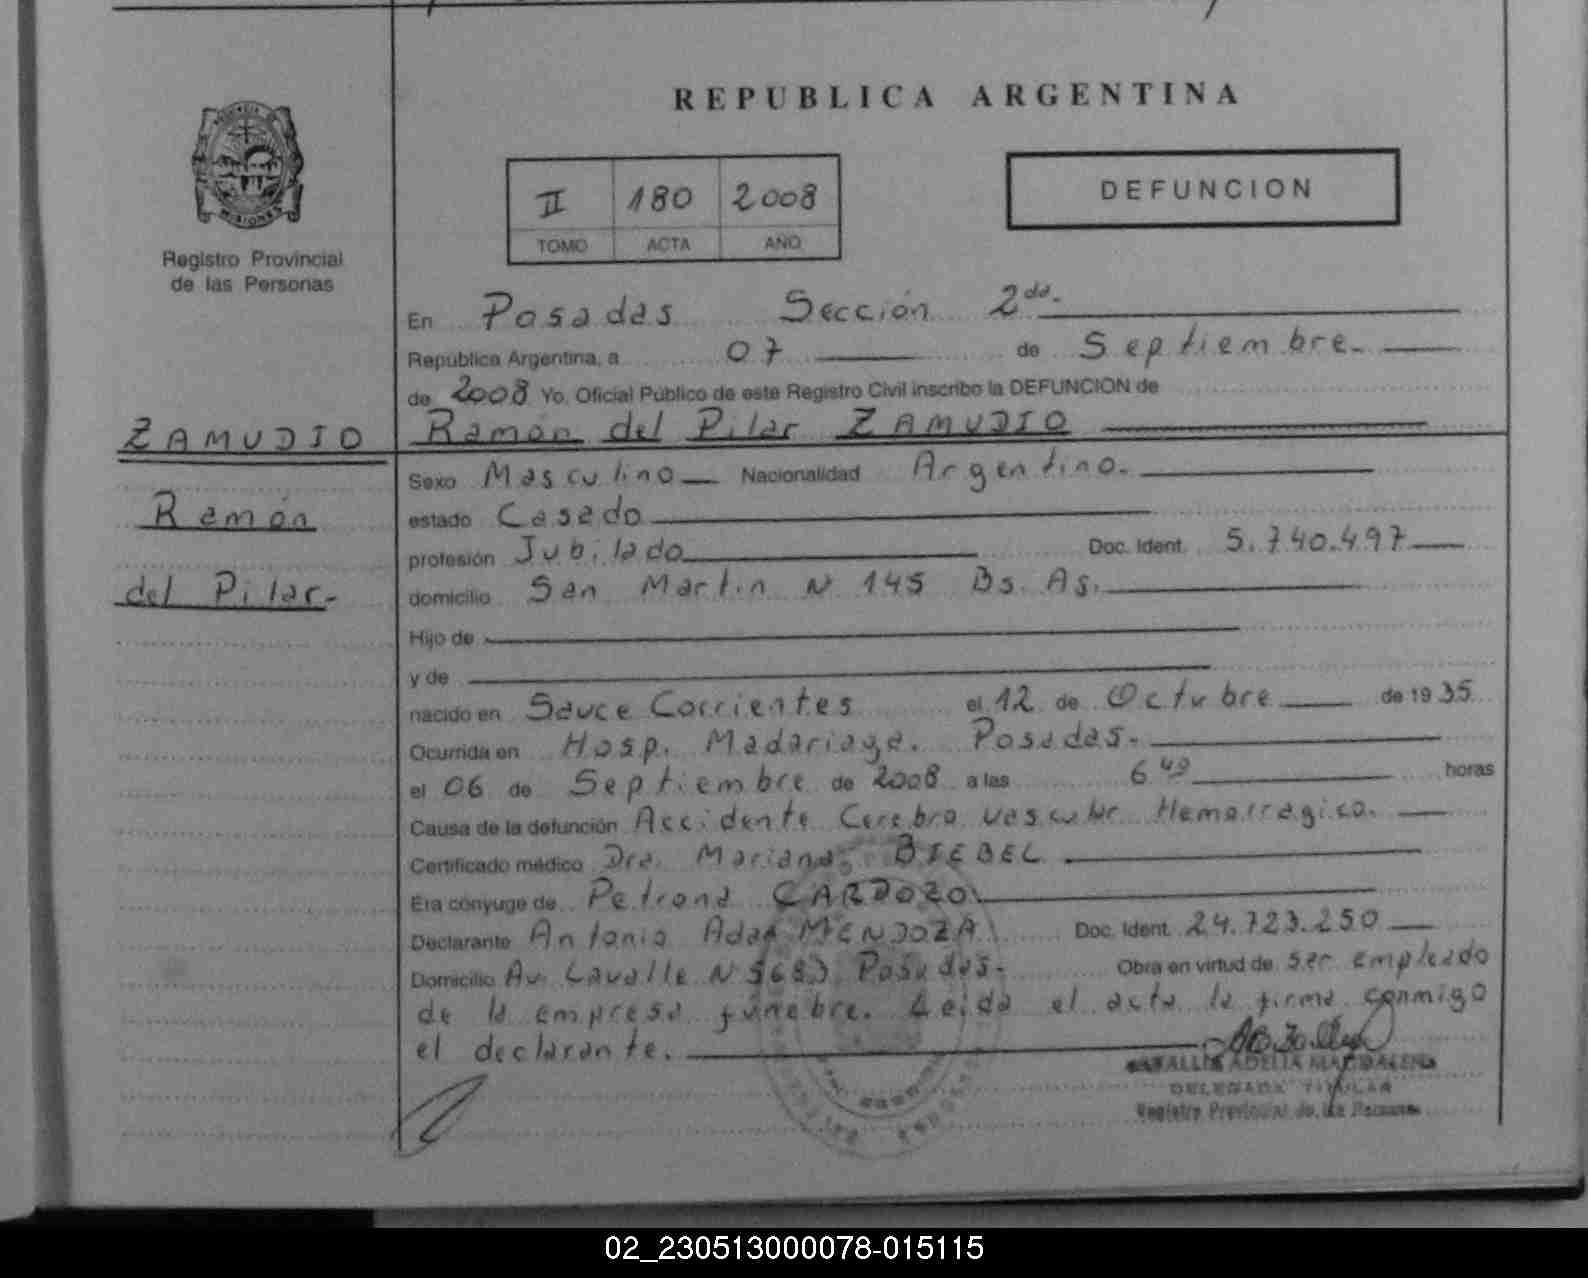 REPUBLICA ARGENTINA
MISIONES
Registro Provincial
de las Personas
II 180 2008
TOMO ACTA AÑO
DEFUNCION
En Posadas Sección 2da.
República Argentina, a 07 de Septiembre.
de 2008 Yo, Oficial Público de este Registro Civil inscribo la DEFUNCION de
ZAMUDIO
Ramón
del Pilar.
Ramón del Pilar ZAMUDIO
Sexo Masculino Nacionalidad Argentino.
estado Casado
profesión Jubilado Doc. Ident. 5.740.497
domicilio San Martin N 145 Bs. As.
Hijo de
y de
nacido en Sauce Corrientes el 12 de Octubre de 1935
Ocurrida en Hosp. Madariaga. Posadas.
el 06 de Septiembre de 2008 a las 6 49 horas
Causa de la defunción Accidente Cerebro vascular Hemorragico.
Certificado médico Dra. Mariana BIEBEL
Era cónyuge de Petrona CARDOZO
Declarante Antonio Adan MENDOZA Doc. Ident. 24.723.250
Domicilio Av. Lavalle N Posadas. Obra en virtud de ser empleado
de la empresa fúnebre. Leida el acta la firma conmigo
el declarante.
ADELIA MAGDALENA
DELEGADA TITULAR
Registro Provincial de las Personas
02_230513000078-015115